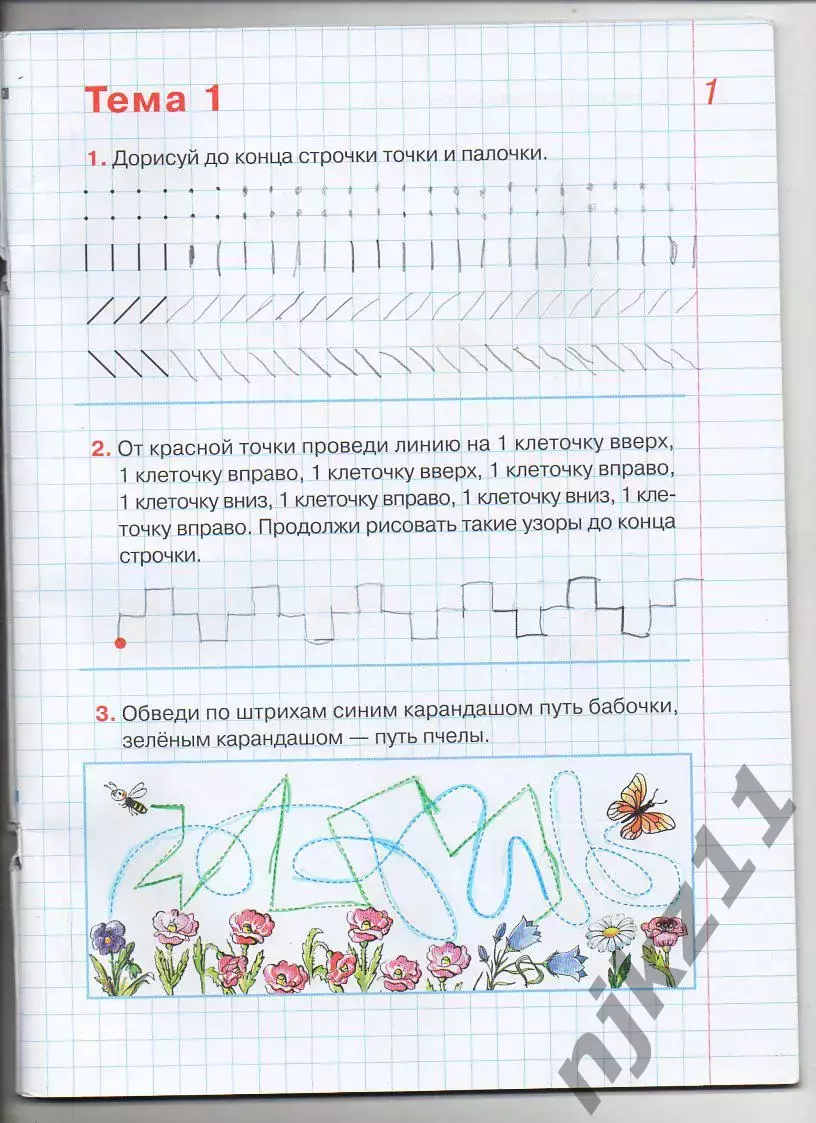 Тема 1
1
1. Дорисуй до конца строчки точки и палочки.
2. От красной точки проведи линию на 1 клеточку вверх,
1 клеточку вправо, 1 клеточку вверх, 1 клеточку вправо,
1 клеточку вниз, 1 клеточку вправо, 1 клеточку вниз, 1 кле-
точку вправо. Продолжи рисовать такие узоры до конца
строчки.
3. Обведи по штрихам синим карандашом путь бабочки,
зелёным карандашом — путь пчелы.
njkz11